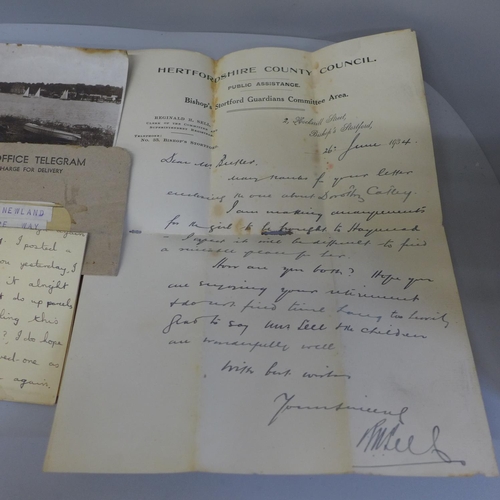 HERTFORDSHIRE COUNTY COUNCIL.
PUBLIC ASSISTANCE.
Bishop's Stortford Guardians Committee Area.
REGINALD H. BELL,
CLERK OF THE COMMITTEE &
TELEPHONE:
BISHOP'S STORTFORD
2,
Bishop's Stortford,
26 June 1934.
Dear Mr
Many thanks for your letter
enclosing the one about Dorothy
I am making arrangements
for the girl to be brought to Haymeads
I expect it will be difficult to find
a suitable place for her.
How are you both? Hope you
are enjoying your retirement
& do not find time hang too heavily
Glad to say Mrs Bell & the children
are wonderfully well
With best wishes
Yours sincerely
OFFICE TELEGRAM
CHARGE FOR DELIVERY
NEWLAND
WAY
I posted
you yesterday, I
it alright
do up parcels
this
? I do hope
one as
again.